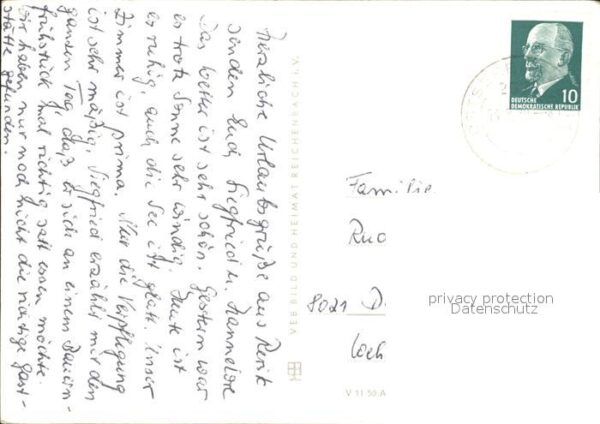 Herzliche Urlaubsgrüße aus Rerik
senden Euch Siegfried u. Hannelore
Das Wetter ist sehr schön. Gestern war
es trotz Sonne sehr windig. Heute ist
es ruhig, auch die See ist glatt. Unser
Zimmer ist prima. Nur die Verpflegung
ist sehr mäßig. Siegfried erzählt mir den
ganzen Tag, daß er sich an einem Bauern-
frühstück mal richtig satt essen möchte.
Wir haben nur noch nicht die richtige Gast-
stätte gefunden.
VEB BILD UND HEIMAT REICHENBACH I. V.
V 11 50 A
10
DEUTSCHE
DEMOKRATISCHE REPUBLIK
Familie
8021 D.
privacy protection
Datenschutz